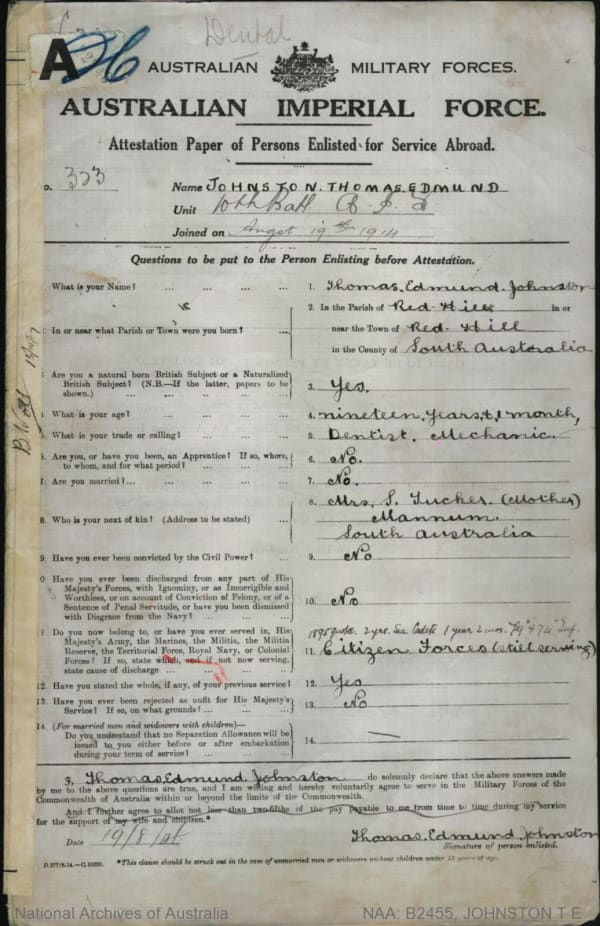 Dental
A
AUSTRALIAN MILITARY FORCES.
AUSTRALIAN IMPERIAL FORCE.
Attestation Paper of Persons Enlisted for Service Abroad.
o. 323
Name JOHNSTON. THOMAS. EDMUND
Unit 10th Batt. A. I. F
Joined on Augst 19th 1914
Questions to be put to the Person Enlisting before Attestation.
What is your Name? ... ... ... ... 1. Thomas. Edmund. Johnston
In or near what Parish or Town were you born? ... 2. In the Parish of Red Hill in or
near the Town of Red. Hill
in the County of South Australia
Are you a natural born British Subject or a Naturalized
British Subject? (N.B.—If the latter, papers to be
shown.) ... ... ... ... 3. Yes.
What is your age? ... ... ... ... 4. nineteen. years, &, 1 month,
What is your trade or calling? ... ... ... 5. Dentist. Mechanic.
Are you, or have you been, an Apprentice? If so, where,
to whom, and for what period? ... ... ... 6. No.
Are you married? ... ... ... ... 7. No.
8. Who is your next of kin? (Address to be stated) ... 8. Mrs, S. Tucker. (Mother)
Mannum.
South Australia
9. Have you ever been convicted by the Civil Power? ... 9. No
0 Have you ever been discharged from any part of His
Majesty's Forces, with Ignominy, or as Incorrigible and
Worthless, or on account of Conviction of Felony, or of a
Sentence of Penal Servitude, or have you been dismissed
with Disgrace from the Navy? ... ... ... 10. No
Do you now belong to, or have you ever served in, His
Majesty's Army, the Marines, the Militia, the Militia
Reserve, the Territorial Force, Royal Navy, or Colonial
Forces? If so, state which, and if not now serving,
state cause of discharge ... ... ...
2 yrs. Sea Cadets 1 year 2 mos. 79th & 74th Inf.
11. Citizen Forces (still serving)
12. Have you stated the whole, if any, of your previous service? 12. Yes
13. Have you ever been rejected as unfit for His Majesty's
Service? If so, on what grounds? ... ... 13. No
14. (For married men and widowers with children)—
Do you understand that no Separation Allowance will be
issued to you either before or after embarkation
during your term of service? ... ... ... 14. —
I, Thomas. Edmund. Johnston do solemnly declare that the above answers made
by me to the above questions are true, and I am willing and hereby voluntarily agree to serve in the Military Forces of the
Commonwealth of Australia within or beyond the limits of the Commonwealth.
And I further agree to allot not less than two-fifths of the pay payable to me from time to time during my service
for the support of my wife and children.*
Date 19/8/14
Thomas. Edmund. Johnston
Signature of person enlisted.
*This clause should be struck out in the case of unmarried men or widowers without children under 18 years of age.
National Archives of Australia
NAA: B2455, JOHNSTON T E